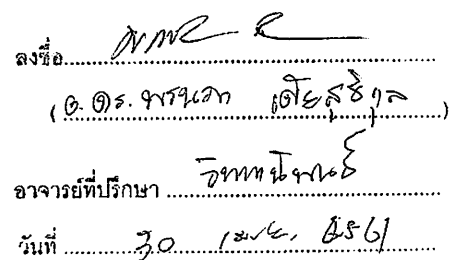 ลงชื่อ
(อ. ดร. พรนภา เตียสุธิกุล)
อาจารย์ที่ปรึกษา วิทยานิพนธ์
วันที่ 30 เม.ย. 2561